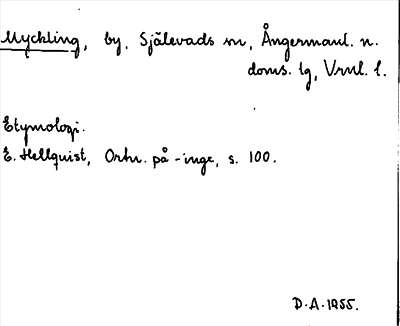 Myckling, by, Själevads sn, Ångermanl. n.
doms. lg, Vrnl. l.
Etymologi.
E. Hellquist, Ortn. på -inge, s. 100.
D.A. 1955.